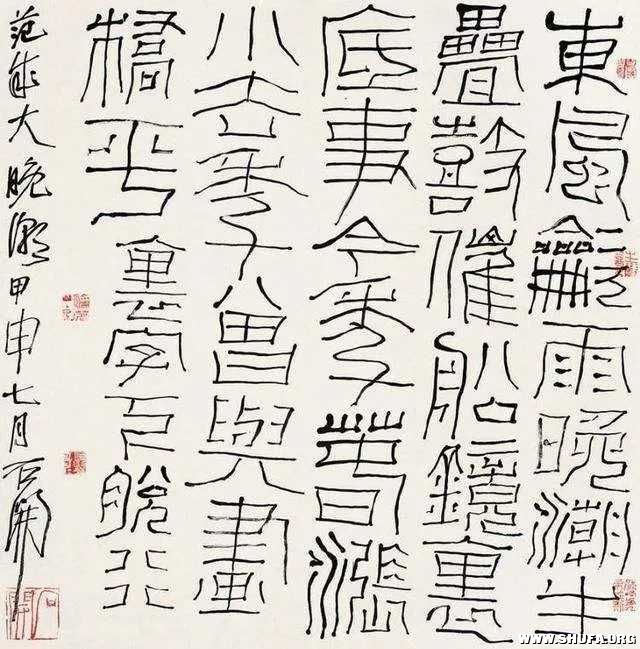 東風龡雨晚潮生
疊鼓催船鏡裏
底事今年春漲
小去年曾與畫
橋平裏字下脫行
范成大晚潮甲申七月石開
WWW.SHUFA.ORG